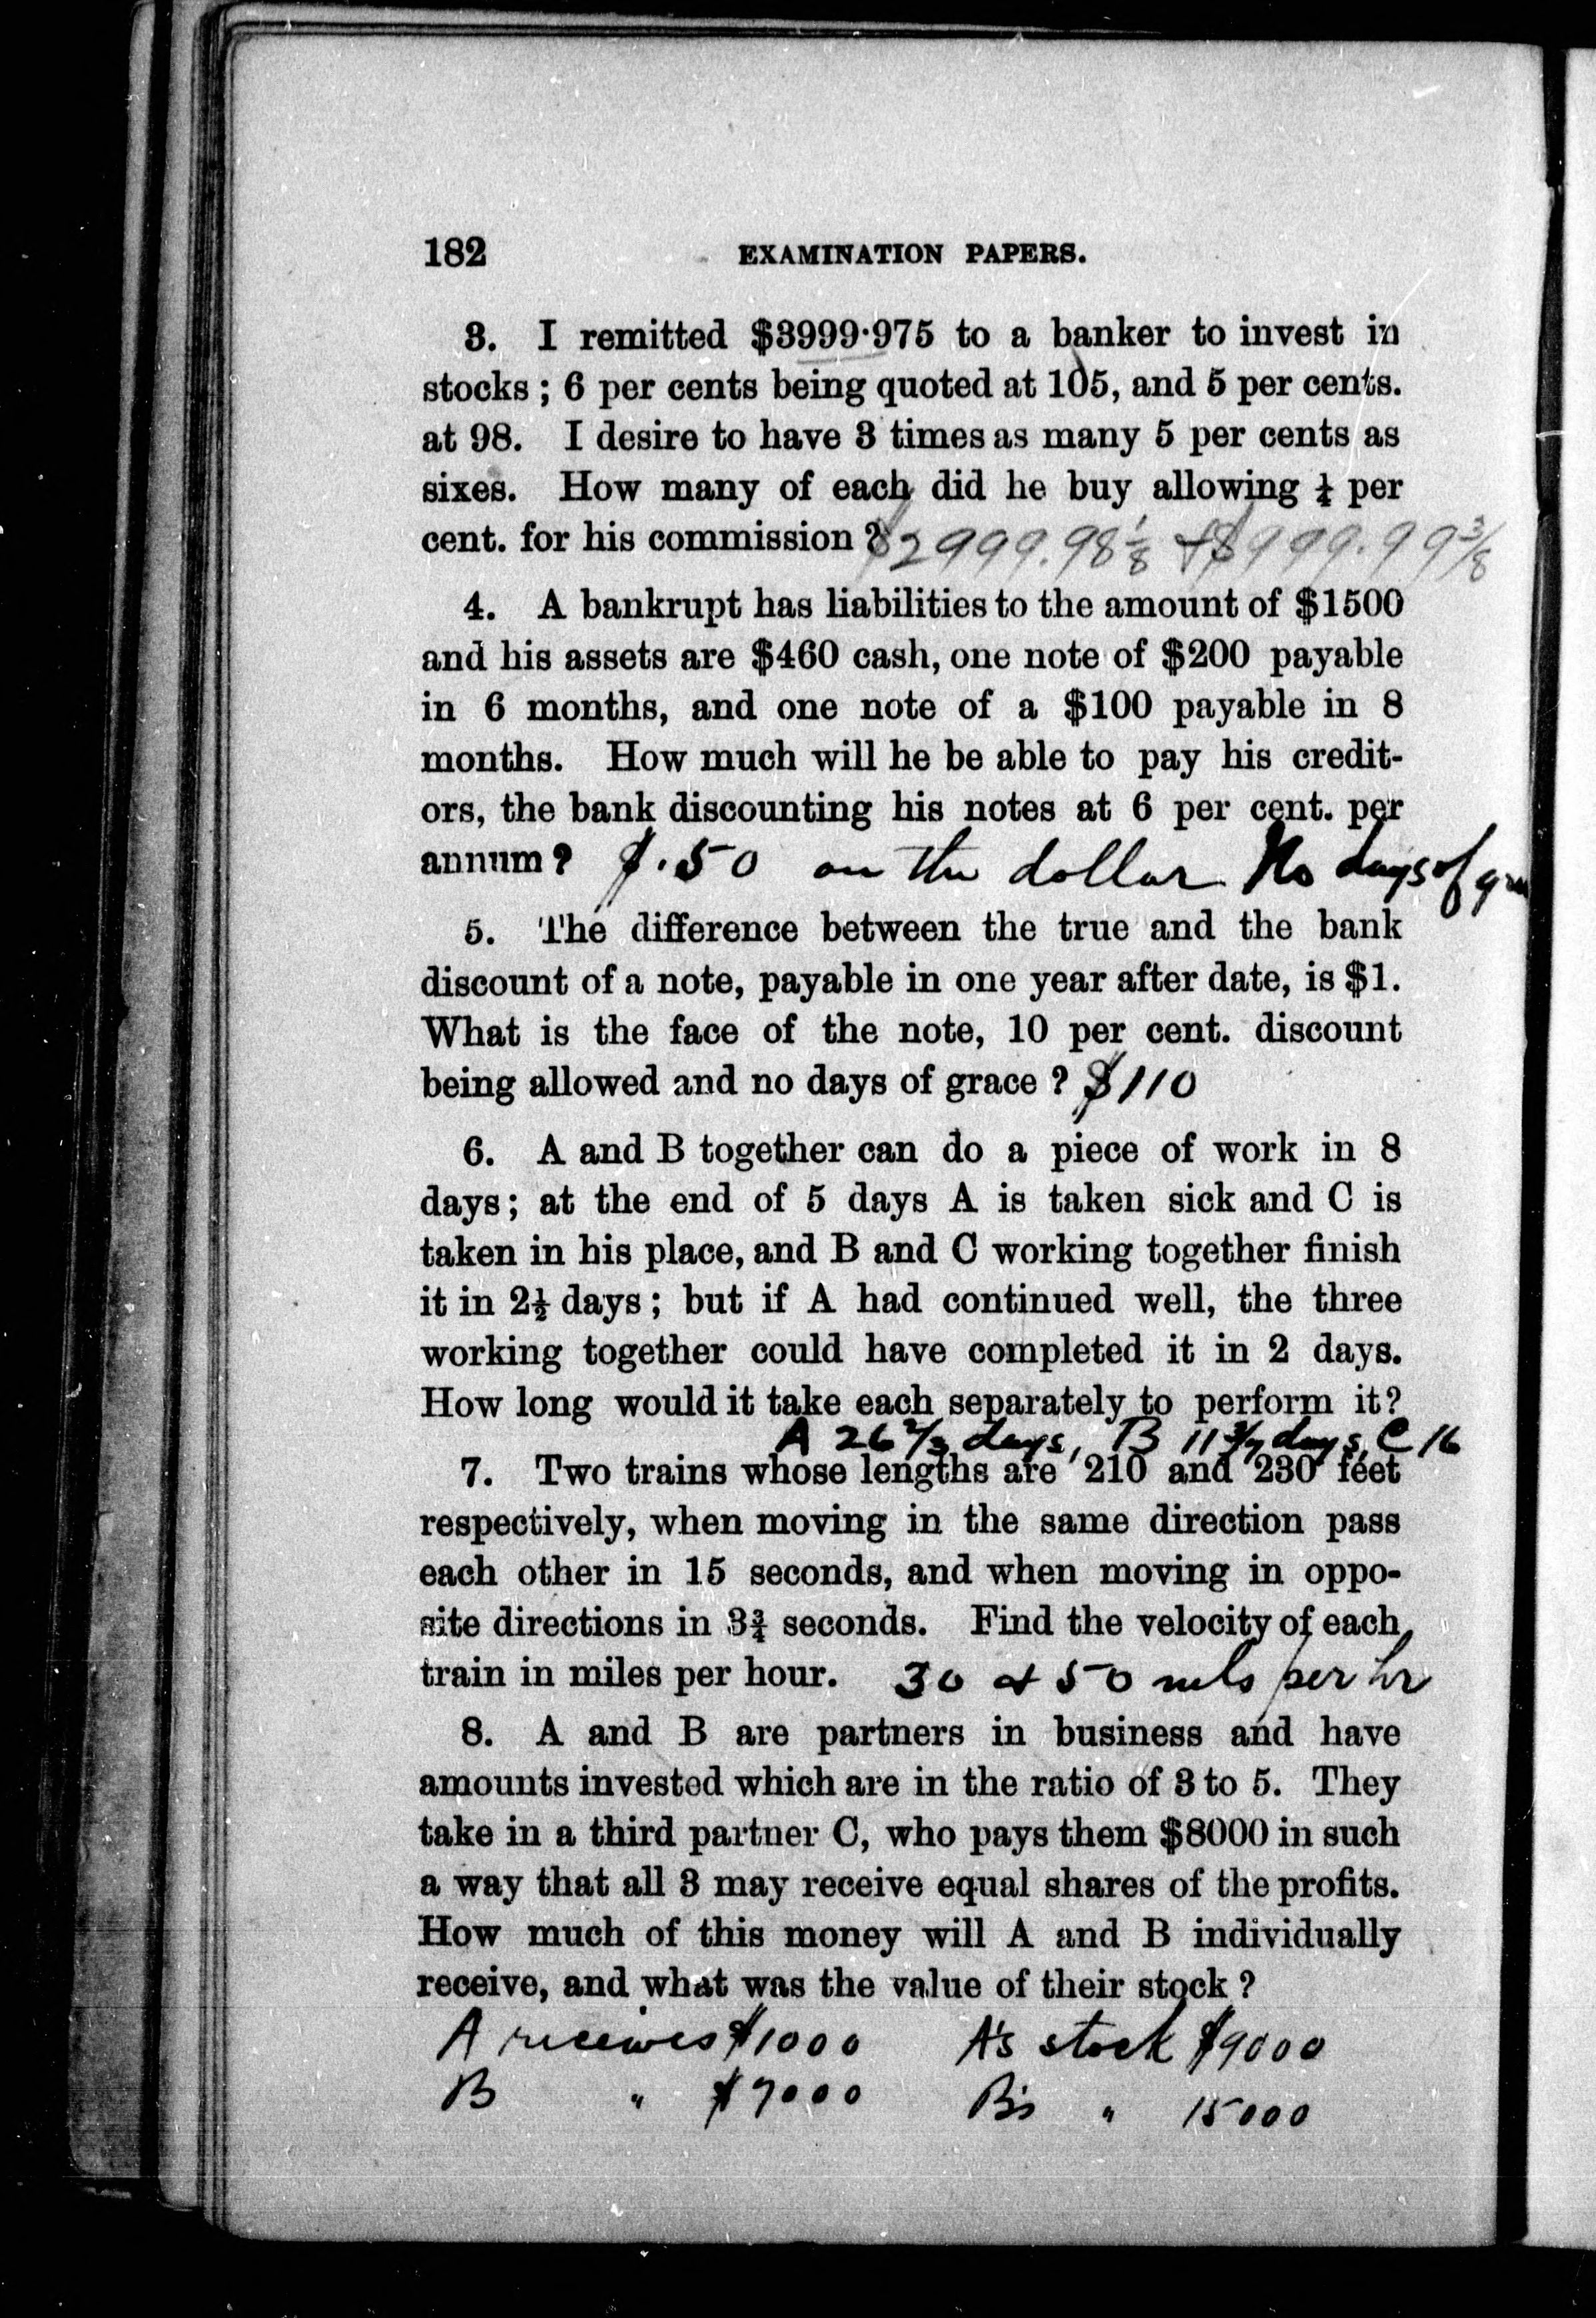 182 EXAMINATION PAPERS.
3. I remitted $3999·975 to a banker to invest in
stocks ; 6 per cents being quoted at 105, and 5 per cents.
at 98. I desire to have 3 times as many 5 per cents as
sixes. How many of each did he buy allowing ¼ per
cent. for his commission ? $2999.98⅛ + $999.99⅜
4. A bankrupt has liabilities to the amount of $1500
and his assets are $460 cash, one note of $200 payable
in 6 months, and one note of a $100 payable in 8
months. How much will he be able to pay his credit-
ors, the bank discounting his notes at 6 per cent. per
annum ? $.50 on the dollar No days of
5. The difference between the true and the bank
discount of a note, payable in one year after date, is $1.
What is the face of the note, 10 per cent. discount
being allowed and no days of grace ? $110
6. A and B together can do a piece of work in 8
days ; at the end of 5 days A is taken sick and C is
taken in his place, and B and C working together finish
it in 2½ days ; but if A had continued well, the three
working together could have completed it in 2 days.
How long would it take each separately to perform it?
A 26⅔ days, B 11 3/7 days, C 16
7. Two trains whose lengths are 210 and 230 feet
respectively, when moving in the same direction pass
each other in 15 seconds, and when moving in oppo-
site directions in 3¾ seconds. Find the velocity of each
train in miles per hour. 30 & 50 mls per hr
8. A and B are partners in business and have
amounts invested which are in the ratio of 3 to 5. They
take in a third partner C, who pays them $8000 in such
a way that all 3 may receive equal shares of the profits.
How much of this money will A and B individually
receive, and what was the value of their stock ?
A receives $1000 A's stock $9000
B " $7000 B's " 15000